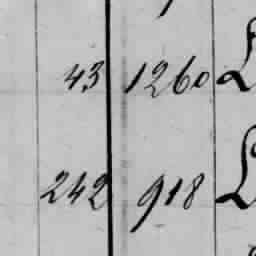 43 1260 L
242 918 L